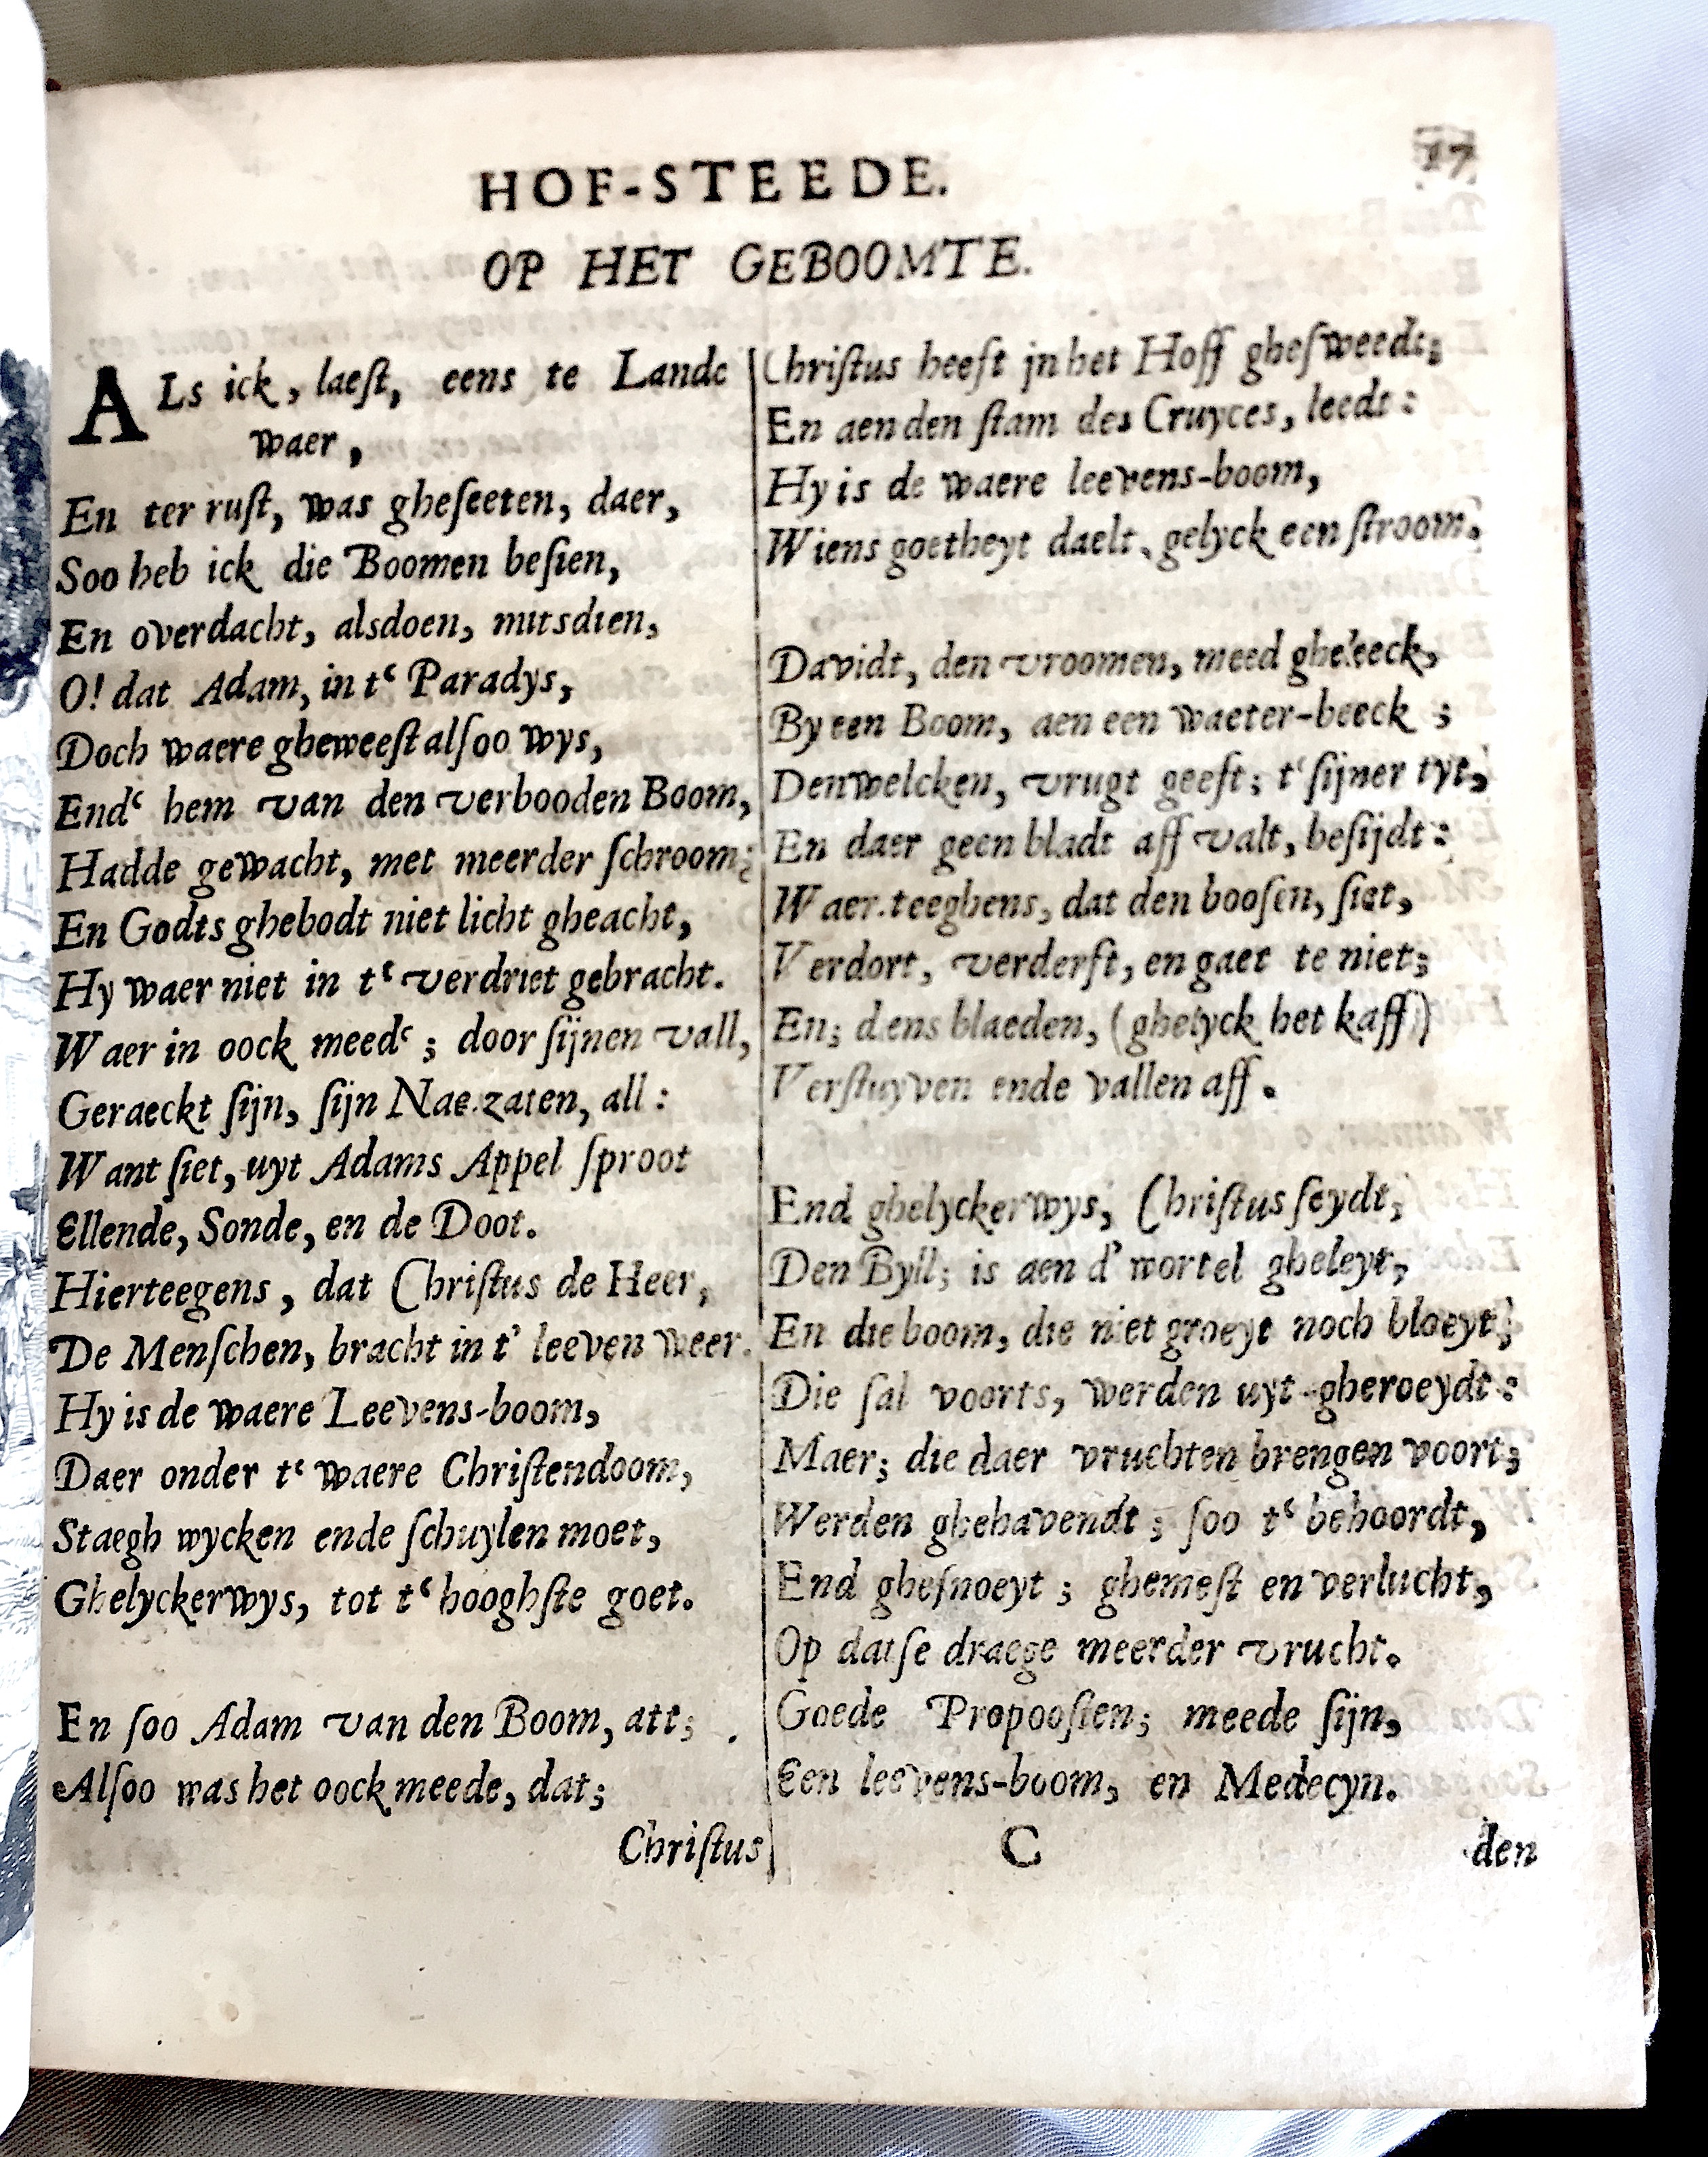 17
HOF-STEEDE.
OP HET GEBOOMTE.
ALs ick, laeſt, eens te Lande
waer,
En ter ruſt, was gheſeeten, daer,
Soo heb ick die Boomen beſien,
En overdacht, alsdoen, mitsdien,
O! dat Adam, in tʿ Paradys,
Doch waere gheweeſt alſoo wys,
Endʿ hem van den verbooden Boom,
Hadde gewacht, met meerder ſchroom;
En Godts ghebodt niet licht gheacht,
Hy waer niet in tʿ verdriet gebracht.
Waer in oock meedʿ; door ſijnen vall,
Geraeckt ſijn, ſijn Nae-zaten, all:
Want ſiet, uyt Adams Appel ſproot
Ellende, Sonde, en de Doot.
Hierteegens, dat Chriſtus de Heer,
De Menſchen, bracht in t' leeven weer.
Hy is de waere Leevens-boom,
Daer onder tʿ waere Chriſtendoom,
Staegh wycken ende ſchuylen moet,
Ghelyckerwys, tot tʿ hooghſte goet.
En ſoo Adam van den Boom, att;
Alſoo was het oock meede, dat;
Chriſtus
Chriſtus heeft jn het Hoff gheſweedt;
En aen den ſtam des Cruyces, leedt:
Hy is de waere leevens-boom,
Wiens goetheyt daelt, gelyck een ſtroom.
Davidt, den vroomen, meed gheleeck,
By een Boom, aen een waeter-beeck;
Denwelcken, vrugt geeft; tʿ ſijner tyt,
En daer geen bladt aff valt, beſijdt:
Waer-teeghens, dat den booſen, ſiet,
Verdort, verderft, en gaet te niet;
En; dens blaeden, (ghelyck het kaff)
Verſtuyven ende vallen aff.
End ghelyckerwys, Chriſtus ſeydt,
Den Byll; is aen d' wortel gheleyt,
En die boom, die niet groeyt noch bloeyt;
Die ſal voorts, werden uyt-gheroeydt:
Maer; die daer vruchten brengen voort;
Werden ghehavendt; ſoo tʿ behoordt,
End gheſnoeyt; ghemeſt en verlucht,
Op datſe draege meerder vrucht.
Goede Propooſien; meede ſijn,
Een leevens-boom, en Medecyn.
C
den